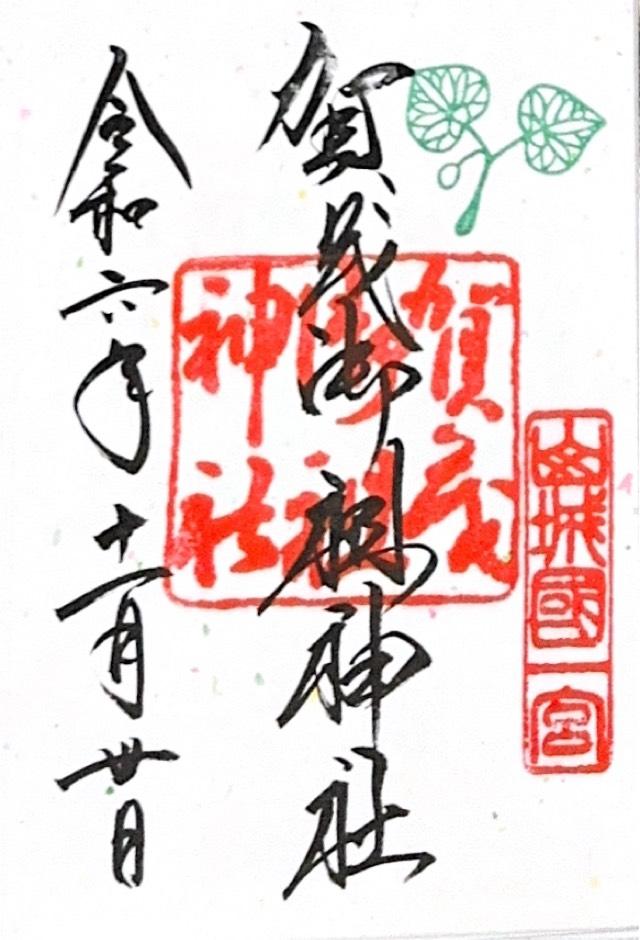 山城國一宮
賀茂御祖神社
賀茂
御祖
神社
令和六年十一月卅日